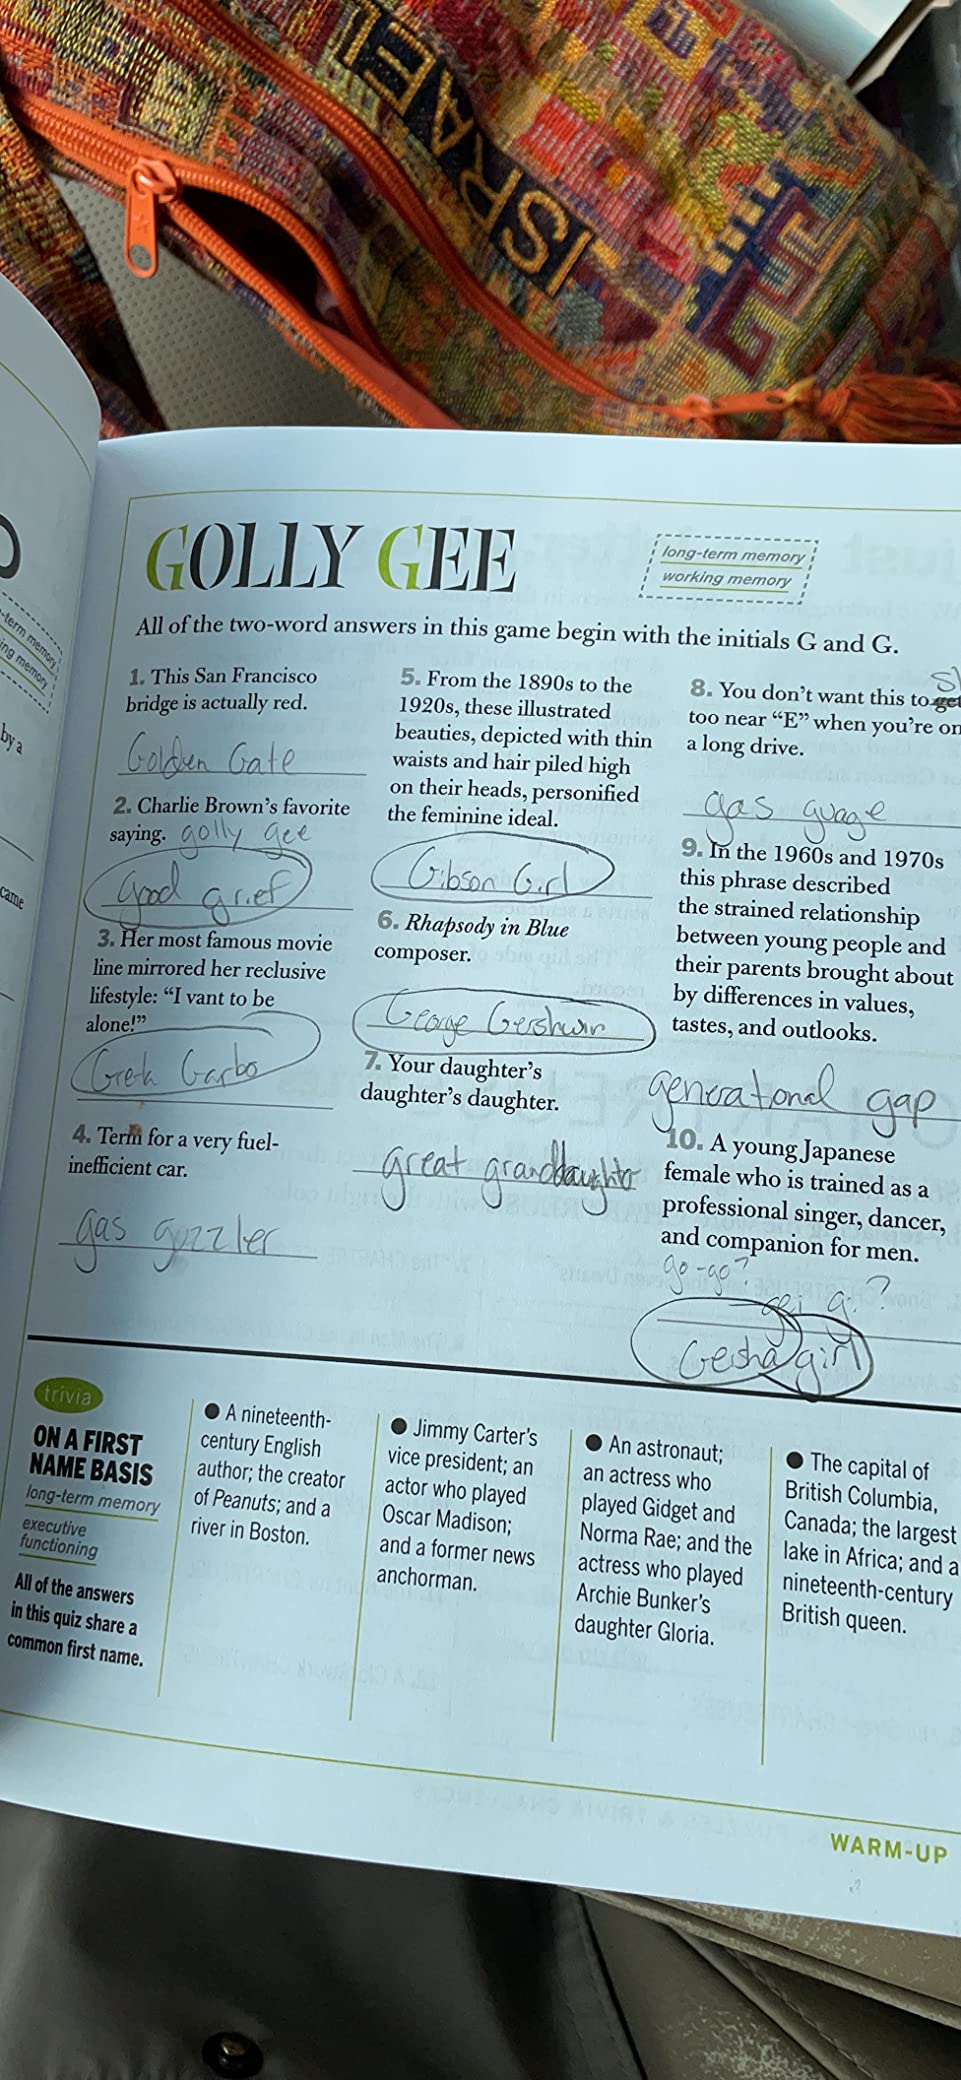 ISRAEL
GOLLY GEE
long-term memory
working memory
All of the two-word answers in this game begin with the initials G and G.
1. This San Francisco
bridge is actually red.
Golden Gate
2. Charlie Brown's favorite
saying. golly gee
Good grief
3. Her most famous movie
line mirrored her reclusive
lifestyle: "I vant to be
alone!"
Greta Garbo
4. Term for a very fuel-
inefficient car.
gas guzzler
5. From the 1890s to the
1920s, these illustrated
beauties, depicted with thin
waists and hair piled high
on their heads, personified
the feminine ideal.
Gibson Girl
6. Rhapsody in Blue
composer.
George Gershwin
7. Your daughter's
daughter's daughter.
great granddaughter
8. You don't want this to get
too near "E" when you're on
a long drive.
gas guage
9. In the 1960s and 1970s
this phrase described
the strained relationship
between young people and
their parents brought about
by differences in values,
tastes, and outlooks.
generational gap
10. A young Japanese
female who is trained as a
professional singer, dancer,
and companion for men.
go-go?
gei g.?
Geisha girl
trivia
ON A FIRST
NAME BASIS
long-term memory
executive
functioning
All of the answers
in this quiz share a
common first name.
● A nineteenth-
century English
author; the creator
of Peanuts; and a
river in Boston.
● Jimmy Carter's
vice president; an
actor who played
Oscar Madison;
and a former news
anchorman.
● An astronaut;
an actress who
played Gidget and
Norma Rae; and the
actress who played
Archie Bunker's
daughter Gloria.
● The capital of
British Columbia,
Canada; the largest
lake in Africa; and a
nineteenth-century
British queen.
WARM-UP
-term memory
ing memory
by a
came